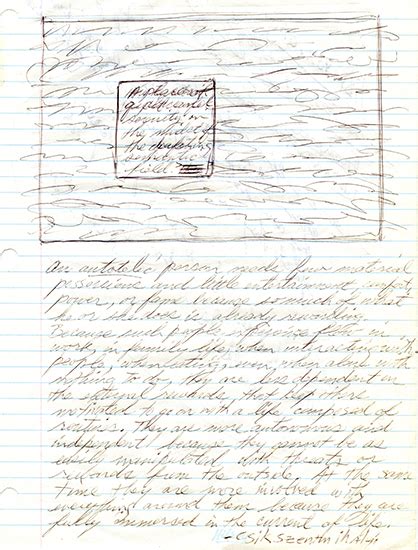 a place of
a
in
the midst of
the
field
An autotelic person needs few material
possessions and little entertainment, comfort,
power, or fame because so much of what
he or she does is already rewarding.
Because such people experience flow in
work, in family life, when interacting with
people, when eating, even when alone with
nothing to do, they are less dependent on
the external rewards that keep others
motivated to go on with a life composed of
routines. They are more autonomous and
independent because they cannot be as
easily manipulated with threats or
rewards from the outside. At the same
time they are more involved with
everything around them because they are
fully immersed in the current of life.
- Csikszentmihalyi